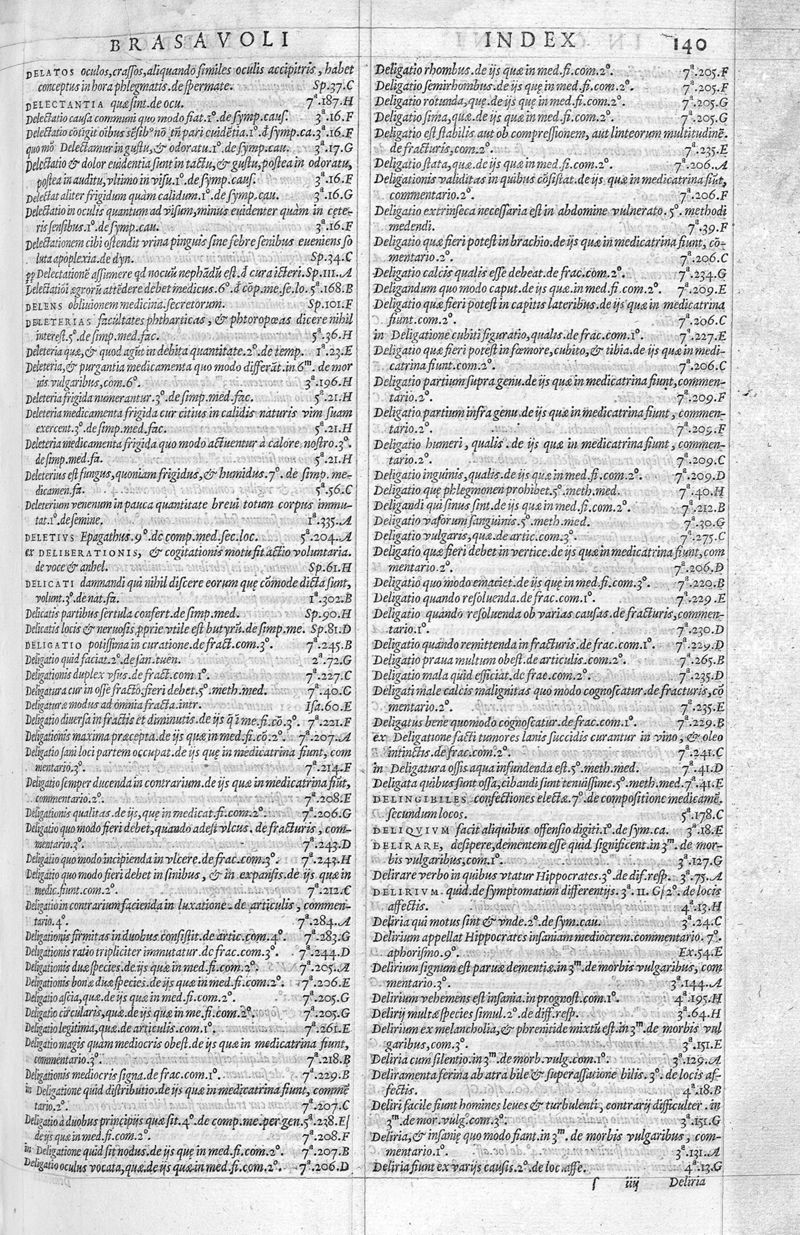 BRASAVOLI INDEX 140
DELATOS oculos, crassos, aliquando similes oculis accipitris, habet
conceptus in hora phlegmatis. de spermate. Sp.37.C
DELECTANTIA quæ sint. de ocu. 7ª.187.H
Delectatio causa communi quo modo fiat. 1º. de symp. caus. 3ª.16.F
Delectatio cõtigit oîbus sẽsibº nõ tñ pari euidẽtia. 1º. d symp. ca. 3ª.16.F
quo mõ Delectamur in gustu, & odoratu. 1º. de symp. cau. 3ª.17.G
Delectatio & dolor euidentia sunt in tactu, & gustu, postea in odoratu,
postea in auditu, vltimo in visu. 1º. de symp. caus. 3ª.16.F
Delectat aliter frigidum quàm calidum. 1º. de symp. cau. 3ª.16.G
Delectatio in oculis quantum ad visum, minus euidenter quàm in cęte-
ris sensibus. 1º. de symp. cau. 3ª.16.F
Delectationem cibi ostendit vrina pinguis sine febre senibus eueniens so
luta apoplexia. de dyn. Sp.34.C
pp Delectationẽ assumere qd nocuũ nephãdũ est. d cura icteri. Sp.111.A
Delectatiõi ægrorũ attẽdere debet medicus. 6º. d cõp. me. se. lo. 5ª.168.B
DELENS obliuionem medicina. secretorum. Sp.101.F
DELETERIAS facultates phtharticas, & phtoropœas dicere nihil
interest. 5º. de simp. med. fac. 5ª.36.H
Deleteria quæ, & quod agũt in debita quantitate. 2º. de temp. 1ª.23.E
Deleteria, & purgantia medicamenta quo modo differãt. in 6m. de mor
uis vulgaribus, com. 6º. 3ª.196.H
Deleteria frigida numerantur. 3º. de simp. med. fac. 5ª.21.H
Deleteria medicamenta frigida cur citius in calidis naturis vim suam
exercent. 3º. de simp. med. fac. 5ª.21.H
Deleteria medicamenta frigida quo modo actuentur à calore nostro. 3º.
de simp. med. fa. 5ª.21.H
Deleterius est fungus, quoniam frigidus, & humidus. 7º. de simp. me-
dicamen. fa. 5ª.56.C
Deleterium venenum in pauca quantitate breui totum corpus immu-
tat. 1º. de semine. 1ª.335.A
DELETIVS Epagathus. 9º. de comp. med. sec. loc. 5ª.204.A
ex DELIBERATIONIS, & cogitationis motu fit actio voluntaria.
de voce & anhel. Sp.61.H
DELICATI damnandi qui nihil discere eorum que cõmode dicta sunt,
volunt. 3º. de nat. fa. 1ª.302.B
Delicatis partibus sertula confert. de simp. med. Sp.90.H
Delicatis locis & neruosis pprie vtile est butyrũ. de simp. me. Sp.81.D
DELIGATIO potissima in curatione. de fract. com. 3º. 7ª.245.B
Deligatio quid faciat. 2º. de san. tuen. 2ª.72.G
Deligationis duplex vsus. de fract. com 1º. 7ª.227.C
Deligatura cur in osse fracto, fieri debet. 5º. meth. med. 7ª.40.G
Deligaturæ modus ad omnia fracta. intr. Isa.60.E
Deligatio diuersa in fractis et diminutis. de ijs q̃ î me. fi. cõ. 3º. 7ª.221.F
Deligationis maxima præcepta. de ijs quæ in med. fi. cõ. 2º. 7ª.207.A
Deligatio sani loci partem occupat. de ijs quę in medicatrina fiunt, com
mentario. 3º. 7ª.214.F
Deligatio semper ducenda in contrarium. de ijs quæ in medicatrina fiũt,
commentario. 2º. 7ª.208.E
Deligationis qualitas. de ijs, quę in medicat. fi. com. 2º. 7ª.206.G
Deligatio quo modo fieri debet, quando adest vlcus. de fracturis, com-
mentario. 3º. 7ª.243.D
Deligatio quo modo incipienda in vlcere. de frac. com. 3º. 7ª.243.H
Deligatio quo modo fieri debet in sinibus, & in expansis. de ijs quæ in
medic. fiunt. com. 2º. 7ª.212.C
Deligatio in contrarium facienda in luxatione. de articulis, commen-
tario. 4º. 7ª.284.A
Deligationis firmitas in duobus consistit. de artic. com. 4º. 7ª.283.G
Deligationis ratio tripliciter immutatur. de frac. com. 3º. 7ª.244.D
Deligationis duæ species. de ijs quæ in med. fi. com. 2º. 7ª.205.A
Deligationis bonæ duæ species. de ijs quæ in med. fi. com. 2º. 7ª.206.E
Deligatio ascia, quæ. de ijs quæ in med. fi. com. 2º. 7ª.205.G
Deligatio circularis, quæ. de ijs quæ in me. fi. com. 2º. 7ª.205.G
Deligatio legitima, quæ. de articulis. com. 1º. 7ª.261.E
Deligatio magis quam mediocris obest. de ijs quæ in medicatrina fiunt,
commentario. 3º. 7ª.218.B
Deligationis mediocris signa. de frac. com. 1º. 7ª.229.B
in Deligatione quid distributio. de ijs quæ in medicatrina fiunt, commẽ
tario. 2º. 7ª.207.C
Deligatio à duobus principijs quæ sit. 4º. de comp. me. per gen. 5ª.238.E/
de ijs quæ in med. fi. com. 2º. 7ª.208.F
in Deligatione quid sit nodus. de ijs quę in med. fi. com. 2º. 7ª.207.B
Deligatio oculus vocata, quæ. de ijs quæ in med. fi. com. 2º. 7ª.206.D
Deligatio rhombus. de ijs quæ in med. fi. com. 2º. 7ª.205.F
Deligatio semirhombus. de ijs quę in med. fi. com. 2º. 7ª.205.F
Deligatio rotunda, quę. de ijs quę in med. fi. com. 2º. 7ª.205.G
Deligatio sima, quæ. de ijs quæ in med. fi. com. 2º. 7ª.205.G
Deligatio est stabilis aut ob compressionem, aut linteorum multitudinẽ.
de fracturis, com. 2º. 7ª.235.E
Deligatio stata, quæ. de ijs quæ in med. fi. com. 2º. 7ª.206.A
Deligationis validitas in quibus cõsistat. de ijs quæ in medicatrina fiũt,
commentario. 2º. 7ª.206.F
Deligatio extrinseca necessaria est in abdomine vulnerato. 5º. methodi
medendi. 7ª.39.F
Deligatio quæ fieri potest in brachio. de ijs quæ in medicatrina fiunt, cõ-
mentario. 2º. 7ª.206.C
Deligatio calcis qualis esse debeat. de frac. com. 2º. 7ª.234.G
Deligandum quo modo caput. de ijs quæ in med. fi. com. 2º. 7ª.209.E
Deligatio quæ fieri potest in capitis lateribus. de ijs quæ in medicatrina
fiunt. com. 2º. 7ª.206.C
in Deligatione cubiti figuratio, qualis. de frac. com. 1º. 7ª.227.E
Deligatio quæ fieri potest in fœmore, cubito, & tibia. de ijs quæ in medi-
catrina fiunt. com. 2º. 7ª.206.C
Deligatio partium supra genu. de ijs quæ in medicatrina fiunt, commen-
tario. 2º. 7ª.209.F
Deligatio partium infra genu. de ijs quæ in medicatrina fiunt, commen-
tario. 2º. 7ª.209.F
Deligatio humeri, qualis. de ijs quæ in medicatrina fiunt, commen-
tario. 2º. 7ª.209.C
Deligatio inguinis, qualis. de ijs quæ in med. fi. com. 2º. 7ª.209.D
Deligatio que phlegmonen prohibet. 5º. meth. med. 7ª.40.H
Deligandi qui sinus sint. de ijs quæ in med. fi. com. 2º. 7ª.212.B
Deligatio vasorum sanguinis. 5º. meth. med. 7ª.30.G
Deligatio vulgaris, quæ. de artic. com. 3º. 7ª.275.C
Deligatio quæ fieri debet in vertice. de ijs quæ in medicatrina fiunt, com
mentario. 2º. 7ª.206.D
Deligatio quo modo emaciet. de ijs quę in med. fi. com. 3º. 7ª.220.B
Deligatio quando resoluenda. de frac. com. 1º. 7ª.229.E
Deligatio quando resoluenda ob varias causas. de fracturis, commen-
tario. 1º. 7ª.230.D
Deligatio quãdo remittenda in fracturis. de frac. com. 1º. 7ª.229.D
Deligatio praua multum obest. de articulis. com. 2º. 7ª.265.B
Deligatio mala quid efficiat. de frac. com. 2º. 7ª.235.D
Deligati male calcis malignitas quo modo cognoscatur. de fracturis, cõ
mentario. 2º. 7ª.235.E
Deligatus bene quomodo cognoscatur. de frac. com. 1º. 7ª.229.B
ex Deligatione facti tumores lanis succidis curantur in vino, & oleo
intinctis. de frac. com. 2º. 7ª.241.C
in Deligatura ossis aqua infundenda est. 5º. meth. med. 7ª.41.D
Deligata quibus sunt ossa, cibandi sunt tenuissime. 5º. meth. med. 7ª.41.E
DELINGIBILES confectiones electæ. 7º. de compositione medicamẽ.
secundum locos. 5ª.178.C
DELIQVIVM facit aliquibus offensio digiti. 1º. de sym. ca. 3ª.18.E
DELIRARE, desipere, dementem esse quid significent. in 3m. de mor-
bis vulgaribus, com. 1º. 3ª.127.G
Delirare verbo in quibus vtatur Hippocrates. 3º. de dif. resp. 3ª.75.A
DELIRIVM. quid. de symptomatum differentijs. 3ª.11.G/2º. de locis
affectis. 4ª.13.H
Deliria qui motus sint & vnde. 2º. de sym. cau. 3ª.24.C
Delirium appellat Hippocrates insaniam mediocrem. commentario. 7º.
aphorismo. 9º. Ex.54.E
Delirium signum est paruæ dementiæ. in 3m. de morbis vulgaribus, com
mentario. 3º. 3ª.144.A
Delirium vehemens est insania. in prognost. com. 1º. 4ª.195.H
Delirij multæ species simul. 2º. de diff. resp. 3ª.64.H
Delirium ex melancholia, & phrenitide mixtũ est. in 3m. de morbis vul
garibus, com. 3º. 3ª.151.E
Deliria cum silentio. in 3m. de morb. vulg. com. 1º. 3ª.129.A
Deliramenta ferina ab atra bile & superassatione bilis. 3º. de locis af-
fectis. 4ª.18.B
Deliri facile fiunt homines leues & turbulenti, contrarij difficulter. in
3m. de mor. vulg. com. 3º. 3ª.151.G
Deliria, & insanię quo modo fiant. in 3m. de morbis vulgaribus, com-
mentario. 1º. 3ª.131.A
Deliria fiunt ex varijs causis. 2º. de loc. affe. 4ª.13.G
ſ iiij Deliria